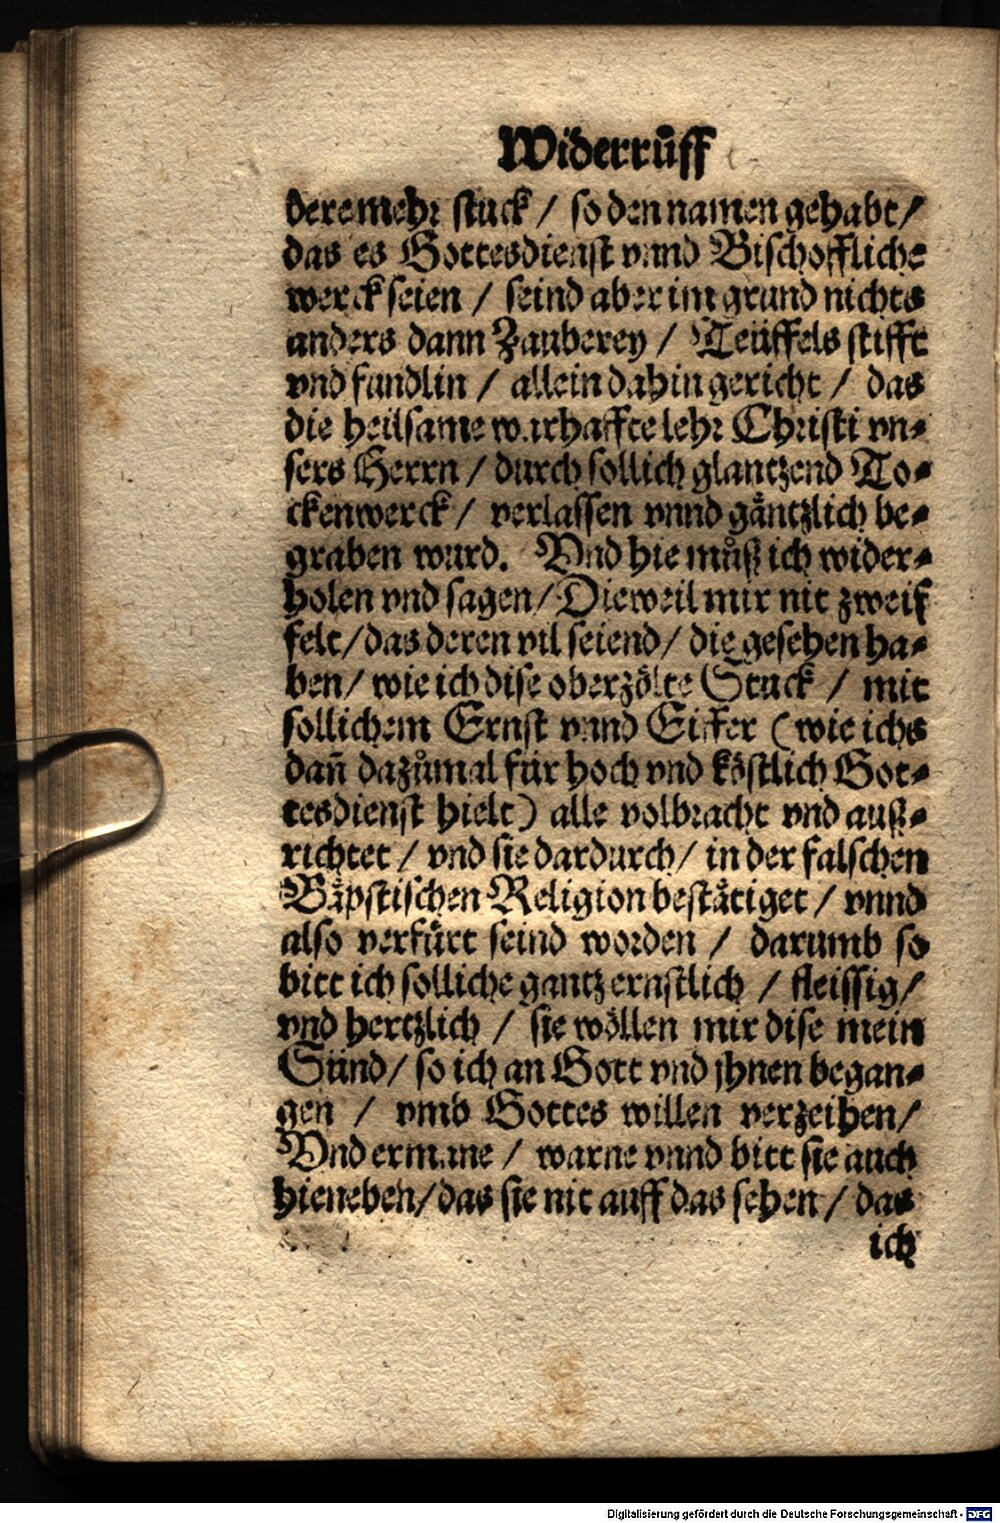 Widerrůff
dere mehr stuck / so den namen gehabt /
das es Gottesdienst vnnd Bischoffliche
werck seien / seind aber im grund nichts
anders dann Zauberey / Teüffels stifft
vnd fundlin / allein dahin gericht / das
die heilsame warhaffte lehr Christi vn-
sers Herrn / durch sollich glantzend To-
ckenwerck / verlassen vnnd gäntzlich be-
graben wurd. Vnd hie můß ich wider-
holen vnd sagen / Dieweil mir nit zweif
felt / das deren vil seiend / die gesehen ha-
ben / wie ich dise oberzölte Stuck / mit
sollichem Ernst vnnd Eiffer (wie ichs
dañ dazůmal für hoch vnd köstlich Got-
tesdienst hielt) alle volbracht vnd auß-
richtet / vnd sie dardurch / in der falschen
Bäpstischen Religion bestätiget / vnnd
also verfürt seind worden / darumb so
bitt ich solliche gantz ernstlich / fleissig /
vnd hertzlich / sie wöllen mir dise mein
Sünd / so ich an Gott vnd jhnen began-
gen / vmb Gottes willen verzeihen /
Vnd ermane / warne vnnd bitt sie auch
hieneben / das sie nit auff das sehen / das
ich
Digitalisierung gefördert durch die Deutsche Forschungsgemeinschaft - DFG